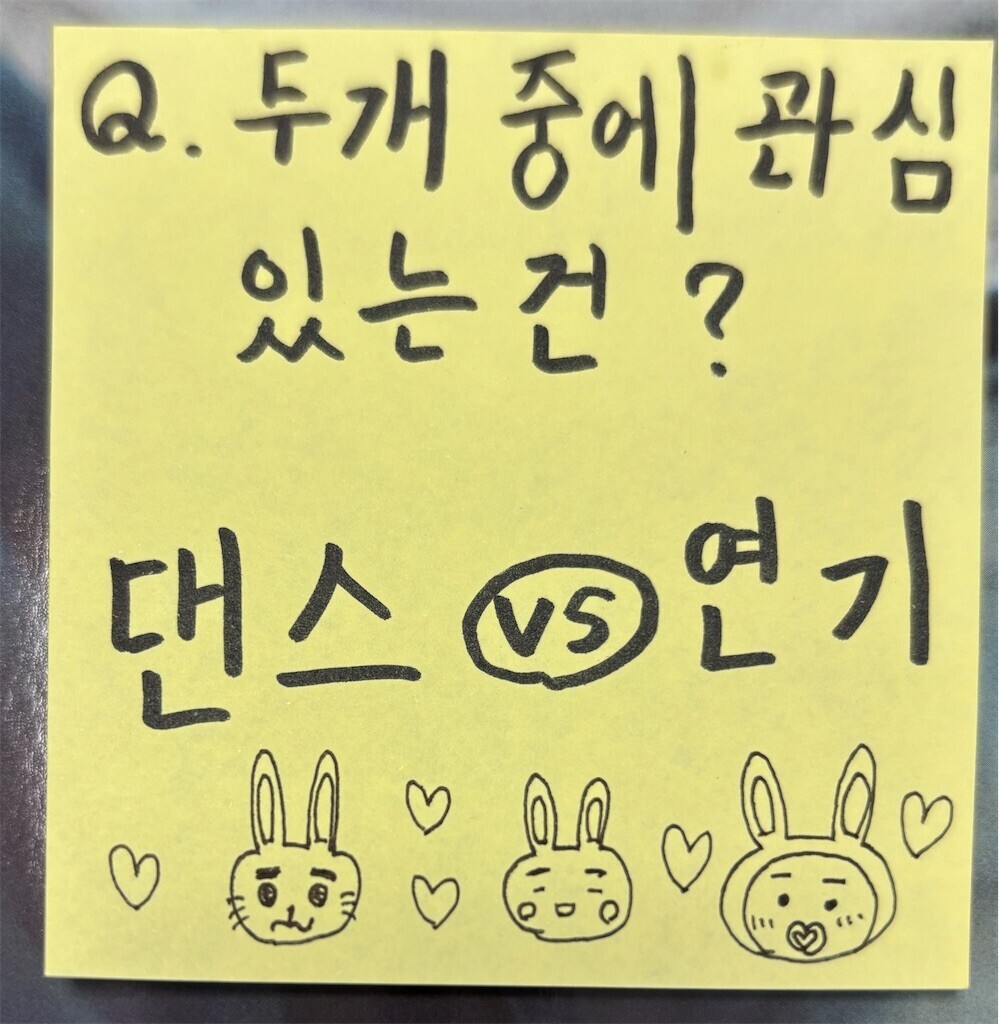 Q. 두개 중에 관심
있는 건?
댄스 VS 연기